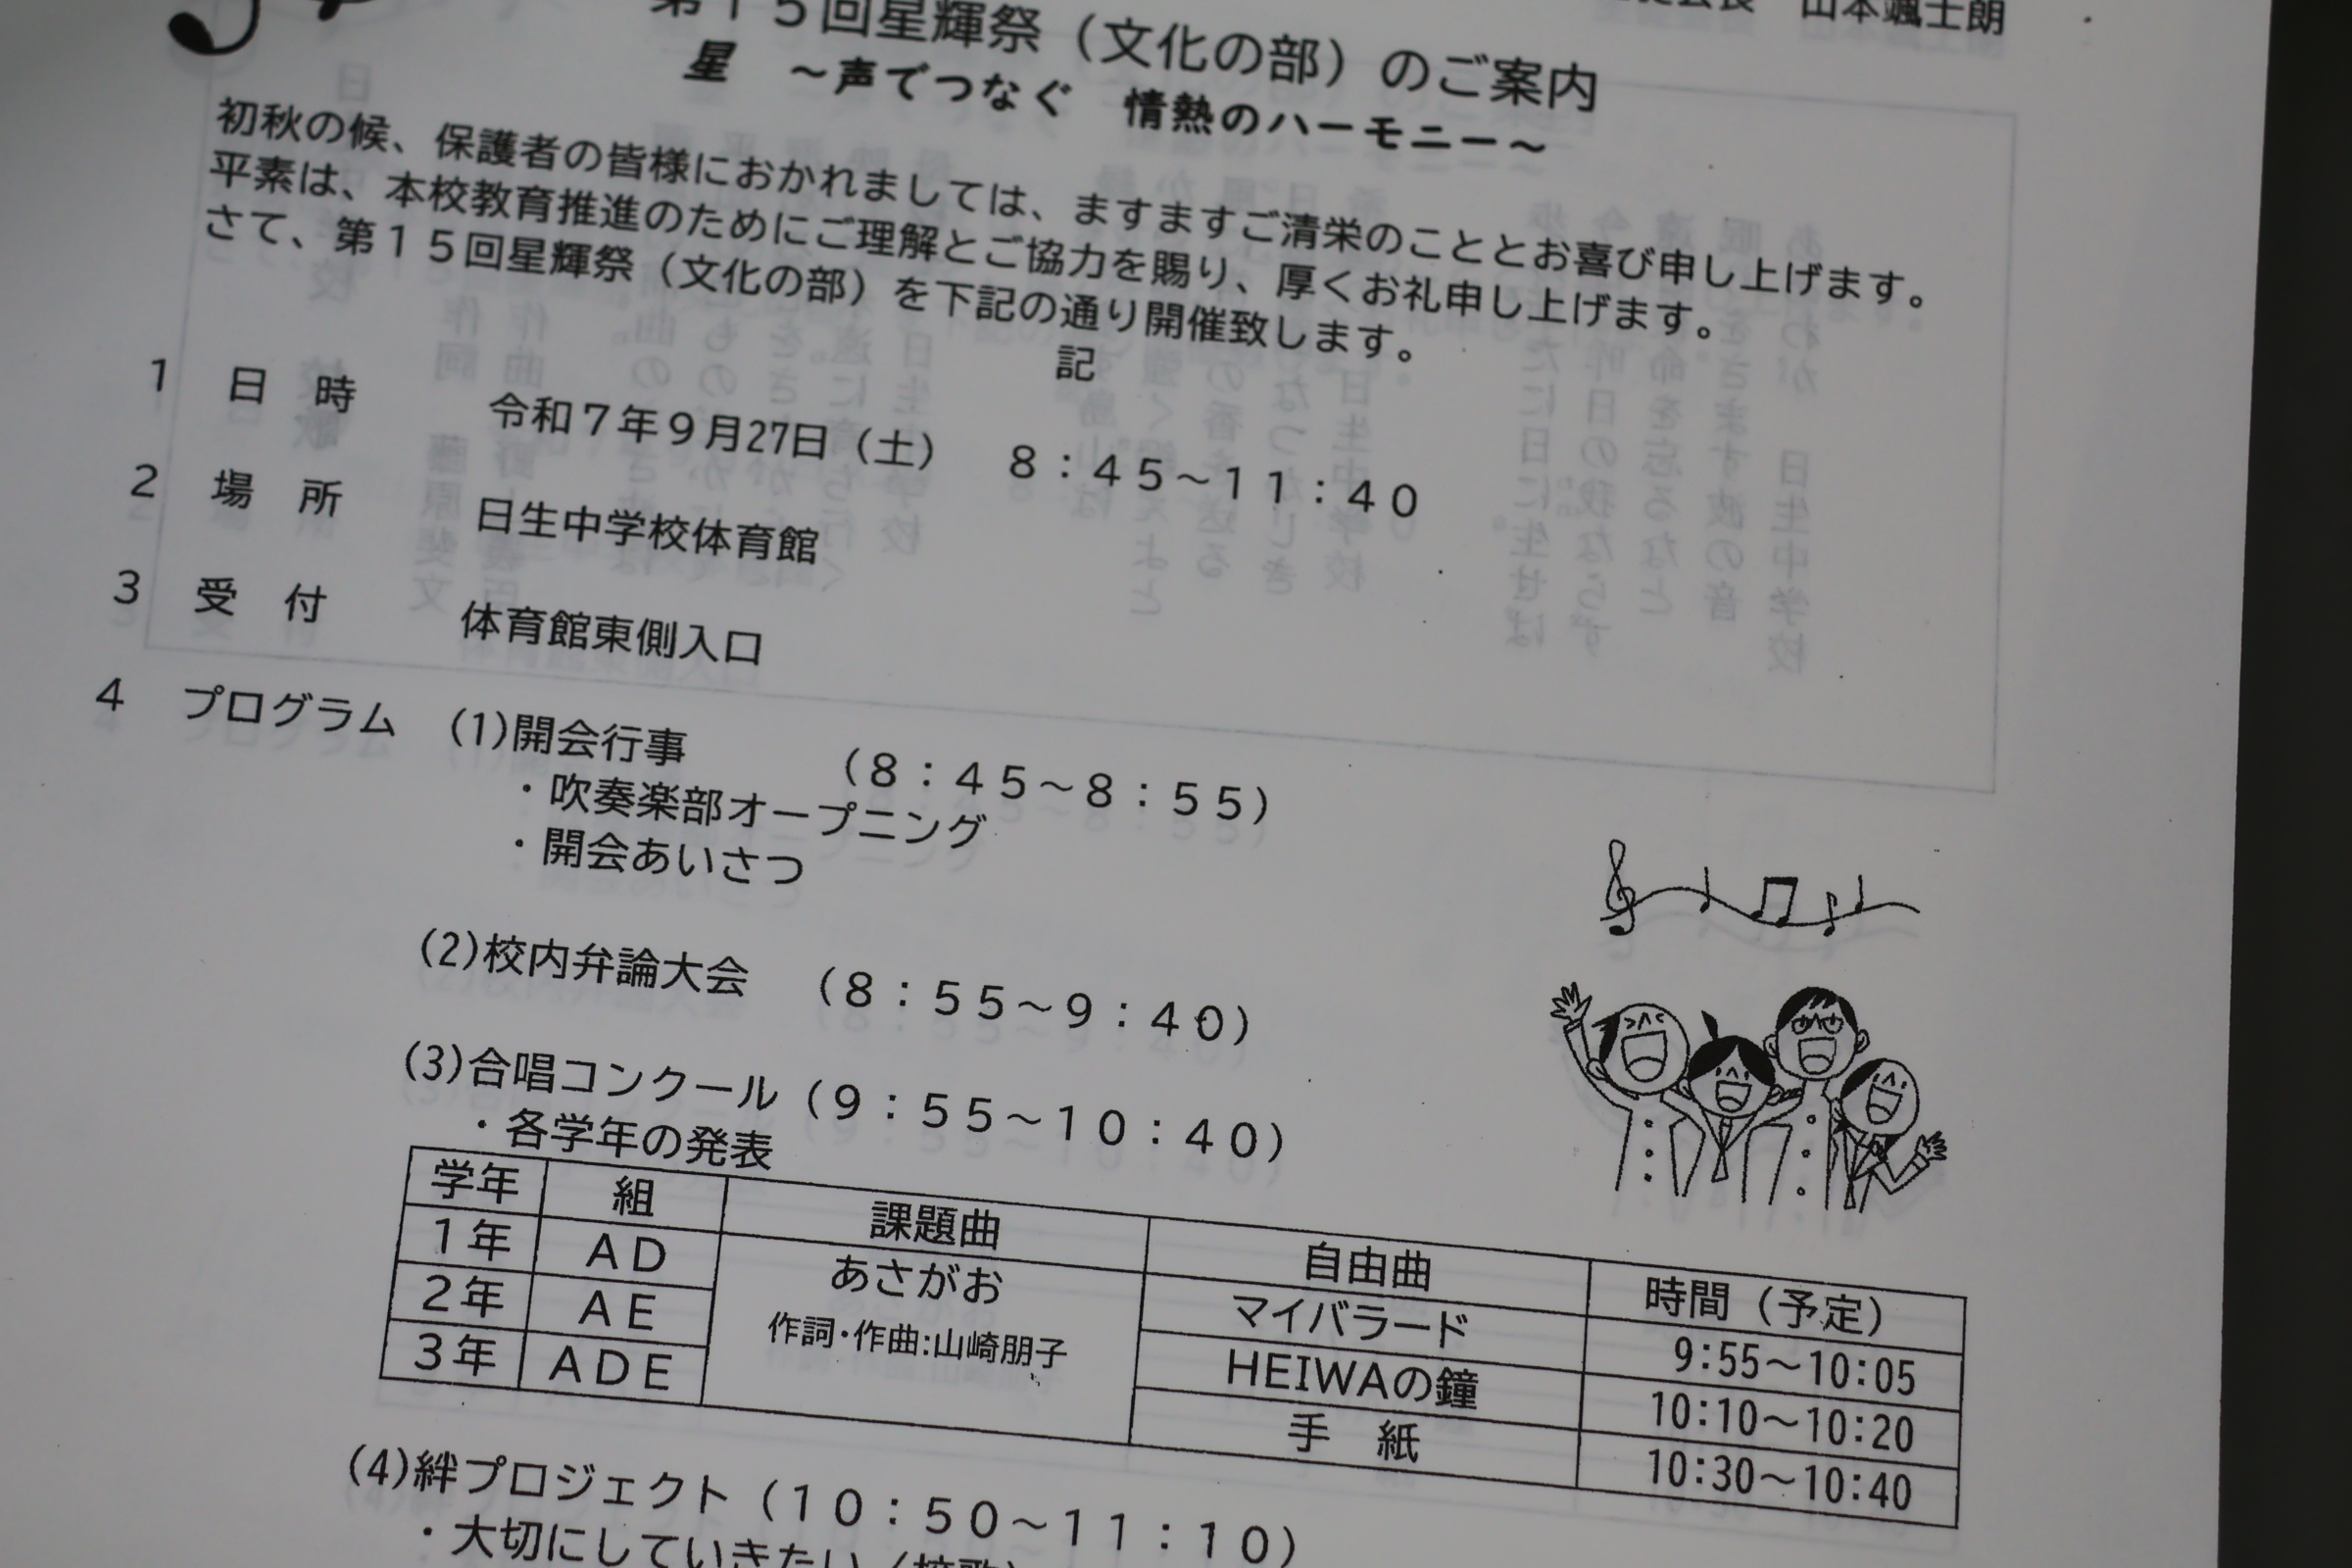 山本颯士朗
第１５回星輝祭（文化の部）のご案内
星　～声でつなぐ　情熱のハーモニー～
初秋の候、保護者の皆様におかれましては、ますますご清栄のこととお喜び申し上げます。
平素は、本校教育推進のためにご理解とご協力を賜り、厚くお礼申し上げます。
さて、第１５回星輝祭（文化の部）を下記の通り開催致します。
記
1　日　時　令和７年９月27日（土）　８：４５～１１：４０
2　場　所　日生中学校体育館
3　受　付　体育館東側入口
4　プログラム　(1)開会行事　（８：４５～８：５５）
・吹奏楽部オープニング
・開会あいさつ
(2)校内弁論大会　（８：５５～９：４０）
(3)合唱コンクール（９：５５～１０：４０）
・各学年の発表
学年　組　課題曲　自由曲　時間（予定）
１年　ＡＤ　あさがお　マイバラード　9:55～10:05
２年　ＡＥ　作詞・作曲:山崎朋子　HEIWAの鐘　10:10～10:20
３年　ＡＤＥ　手　紙　10:30～10:40
(4)絆プロジェクト（１０：５０～１１：１０）
・大切にしていきたい（校歌）